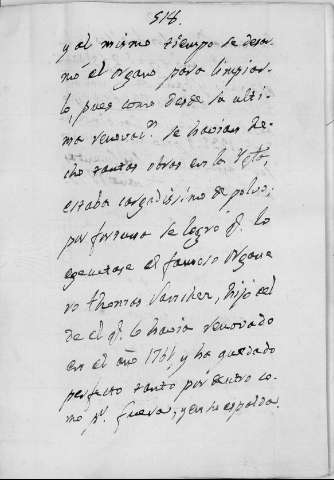 518.
y al mismo tiempo se desar-
mó el organo para limpiar-
lo, pues como desde la ulti-
ma renovac.n se havian he-
cho tantas obras en la Ygla,
estaba cargadissimo de polvo;
por fortuna se logró q.e lo
egecutase el famoso Organe
ro Thomas Sanchez, hijo del
de el q.e lo havia renovado
en el año 1766, y ha quedado
perfecto tanto por dentro co-
mo p.r fuera, y en su espalda